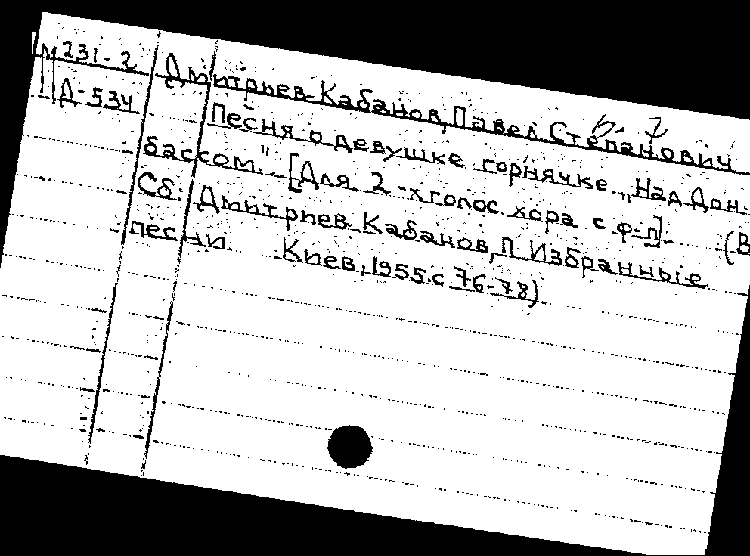 М231-2 Дмитриев-Кабанов, Павел Степанович
Д-534 Песня о девушке горнячке. „Над Дон-
бассом." [Для 2-хголос. хора с ф-п]. (В
Сб. Дмитриев Кабанов, П. Избранные
песни. Киев, 1955. с. 76-78)